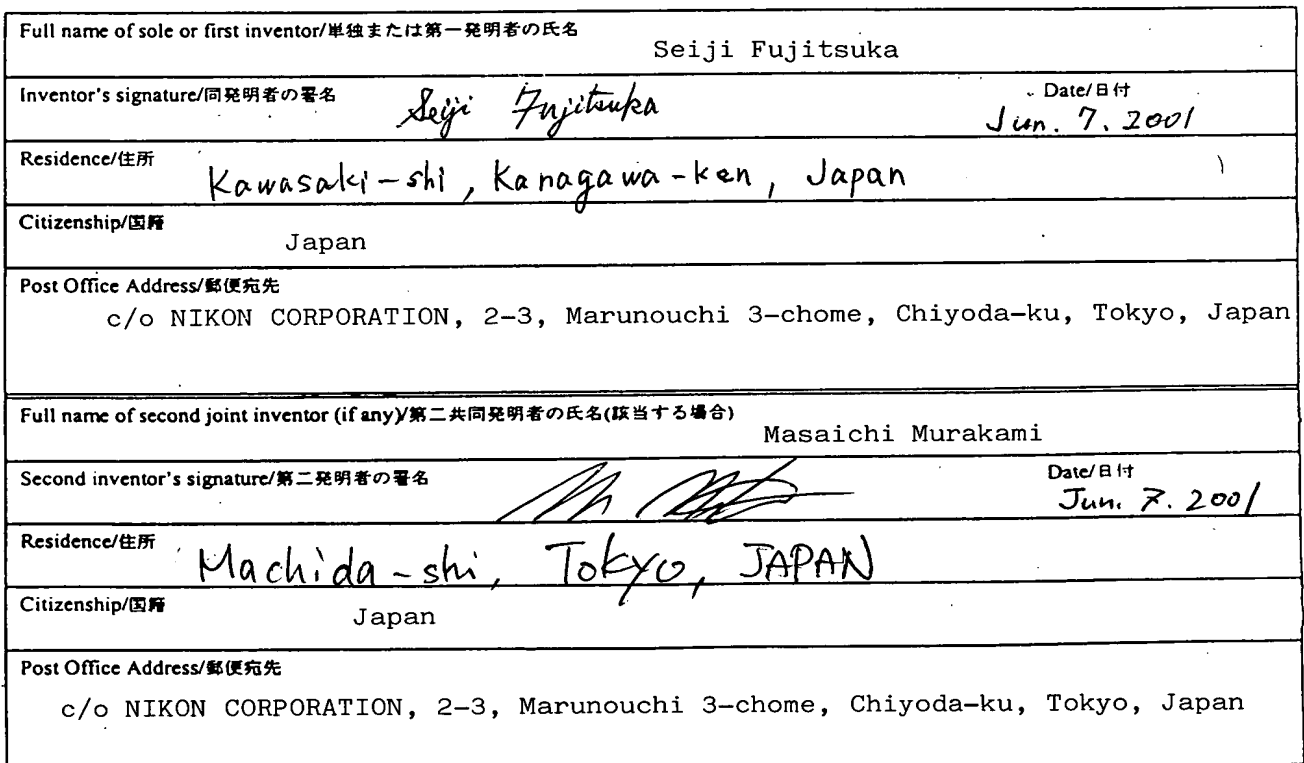 Full name of sole or first inventor/単独または第一発明者の氏名
Seiji Fujitsuka
Inventor's signature/同発明者の署名 Seiji Fujitsuka Date/日付
Jun. 7. 2001
Residence/住所 Kawasaki-shi, Kanagawa-ken, Japan
Citizenship/国籍
Japan
Post Office Address/郵便宛先
c/o NIKON CORPORATION, 2-3, Marunouchi 3-chome, Chiyoda-ku, Tokyo, Japan
Full name of second joint inventor (if any)/第二共同発明者の氏名(該当する場合)
Masaichi Murakami
Second inventor's signature/第二発明者の署名 Date/日付
Jun. 7. 2001
Residence/住所 Machida-shi, Tokyo, JAPAN
Citizenship/国籍
Japan
Post Office Address/郵便宛先
c/o NIKON CORPORATION, 2-3, Marunouchi 3-chome, Chiyoda-ku, Tokyo, Japan